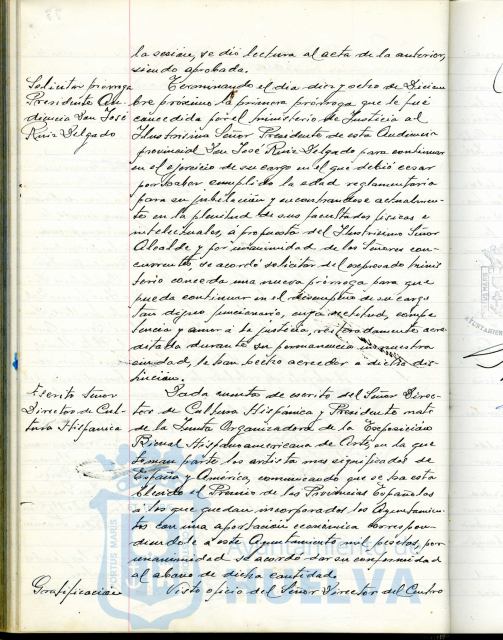 la sesión, se dió lectura al acta de la anterior,
siendo aprobada.
Solicitar prórroga
Presidente Au-
diencia Don José
Ruiz Delgado
Terminando el día diez y ocho de Diciem
bre próximo la primera prórroga que le fué
concedida por el ministerio de Justicia al
Ilustrisimo Señor Presidente de esta Audiencia
provincial Don José Ruiz Delgado para continuar
en el ejercicio de su cargo en el que debió cesar
por haber cumplido la edad reglamentaria
para su jubilación y encontrandose actualmen-
te en la plenitud de sus facultades físicas e
intelectuales, a propuesta del Ilustrisimo Señor
Alcalde y por unanimidad de los Señores con-
currentes, se acordó solicitar del expresado minis
terio conceda una nueva prórroga para que
pueda continuar en el desempeño de su cargo
tan digno funcionario, cuya rectitud, compe
tencia y amor a la justicia, reiteradamente acre
ditada durante su permanencia en nuestra
ciudad, le han hecho acreedor a dicha dis-
tinción.
Escrito Señor
Director de Cul-
tura Hispanica
Dada cuenta de escrito del Señor Direc-
tor de Cultura Hispánica y Presidente nato
de la Junta Organizadora de la Exposición
Bienal Hispanoamericana de Arte, en la que
toman parte los artistas mas significados de
España y America, comunicando que se ha esta
blecido el Premio de las Provincias Españolas
a los que quedan incorporados los Ayuntamien-
tos con una aportación económica correspon-
diendole a este Ayuntamiento mil pesetas, por
unanimidad se acordó dar su conformidad
al abono de dicha cantidad.
Gratificacion
Visto oficio del Señor Director del Centro
PORTUS MARIS
Ayuntamiento de
HUELVA